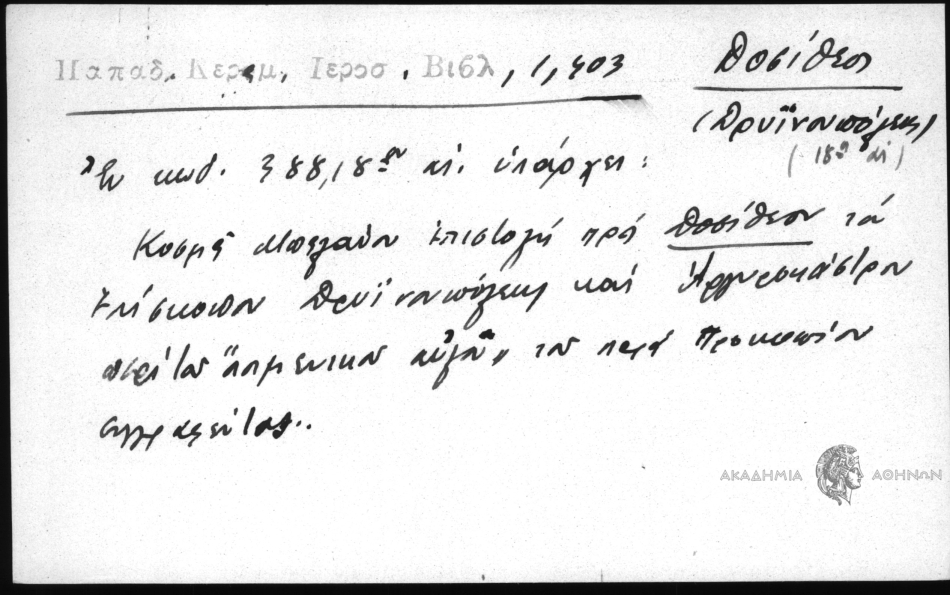 Παπαδ. Κεραμ. Ιεροσ. Βιβλ, 1, 403
Δοσίθεος
(Δρυϊνουπόλεως)
(18ος αἰ)
Ἐν κωδ. 388, 18ου αἰ. ὑπάρχει:
Κοσμᾶ Ἐπιστολή πρός Δοσίθεον τόν
Ἐπίσκοπον Δρυϊνουπόλεως καί Ἀργυροκάστρου
περί τοῦ αὐγοῦ" τοῦ παρά Προκοπίου
συγγραφέντος..
ΑΚΑΔΗΜΙΑ ΑΘΗΝΩΝ